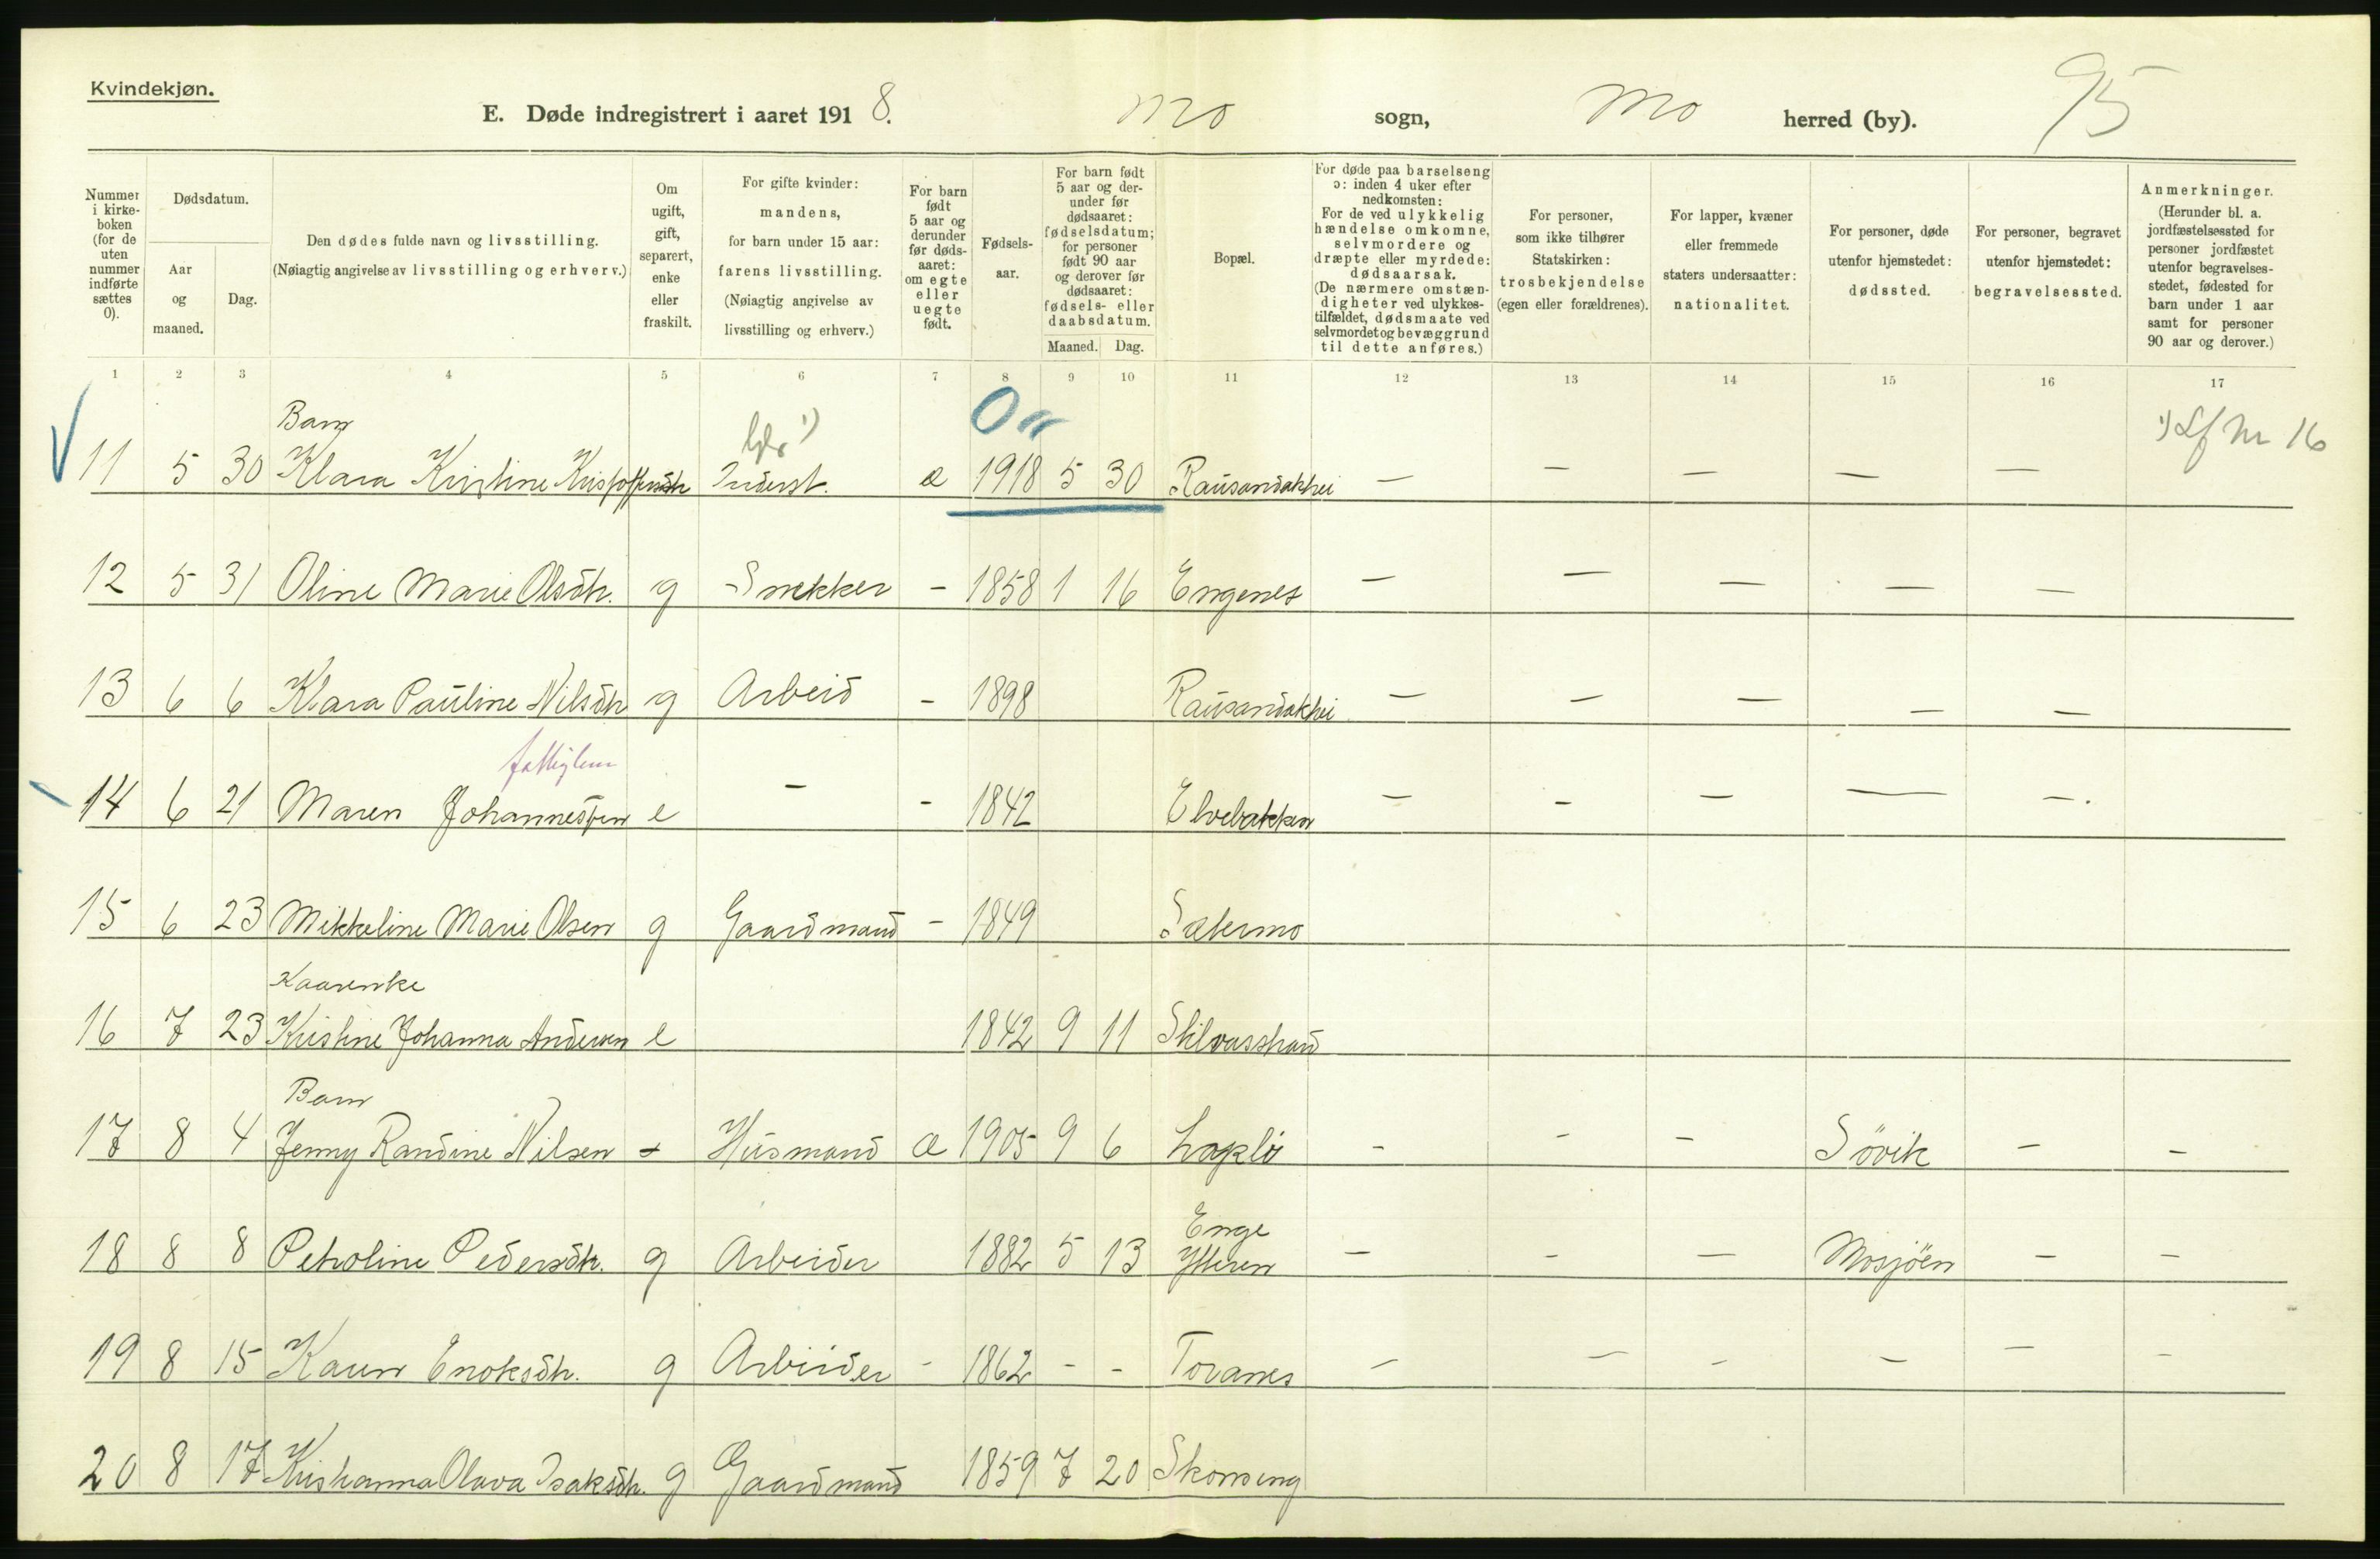 Kvindekjøn.
E. Døde indregistrert i aaret 1918. Mo sogn, Mo herred (by). 95
Nummer i kirkeboken (for de uten nummer indførte sættes 0).
Dødsdatum.
Aar og maaned.
Dag.
Den dødes fulde navn og livsstilling.
(Nøiagtig angivelse av livsstilling og erhverv.)
Om ugift, gift, separert, enke eller fraskilt.
For gifte kvinder: mandens, for barn under 15 aar: farens livsstilling. (Nøiagtig angivelse av livsstilling og erhverv.)
For barn født 5 aar og derunder før dødsaaret: om egte eller uegte født.
Fødselsaar.
For barn født 5 aar og derunder før dødsaaret: fødselsdatum; for personer født 90 aar og derover før dødsaaret: fødsels- eller daabsdatum.
Maaned. Dag.
Bopæl.
For døde paa barselseng ɔ: inden 4 uker efter nedkomsten: For de ved ulykkelig hændelse omkomne, selvmordere og dræpte eller myrdede: dødsaarsak. (De nærmere omstændigheter ved ulykkestilfældet, dødsmaate ved selvmordet og bevæggrund til dette anføres.)
For personer, som ikke tilhører Statskirken: trosbekjendelse (egen eller forældrenes).
For lapper, kvæner eller fremmede staters undersaatter: nationalitet.
For personer, døde utenfor hjemstedet: dødssted.
For personer, begravet utenfor hjemstedet: begravelsessted.
Anmerkninger. (Herunder bl. a. jordfæstelsessted for personer jordfæstet utenfor begravelsesstedet, fødested for barn under 1 aar samt for personer 90 aar og derover.)
1 2 3 4 5 6 7 8 9 10 11 12 13 14 15 16 17
Barn 0 ¹) Lf Nr 16
11 5 30 Klara Kristine Inderst. e 1918 5 30 Rausandakhei — — — — —
12 5 31 Oline Marie Olsdtr. g Snekker - 1858 1 16 Engenes — — — — —
13 6 6 Klara Pauline Nilsdtr g Arbeid - 1898 Rausandakhei — — — — —
fattiglem
14 6 21 Maren Johannessen e - - 1842 Elvebakken — - — — -.
15 6 23 Mikkeline Marie Olsen g Gaardmand - 1849 Sætermo
Kaarenke
16 7 23 Kristine Johanna Andersen e 1842 9 11 Stilvasstrand
Barn
17 8 4 Jenny Randine Nilsen Husmand e 1905 9 6 - - - Sövik - -
Enge
18 8 8 Petroline Pedersdtr. g Arbeider 1882 5 13 Ytteren — - — Mosjöen - -
19 8 15 Karen Enoksdtr. g Arbeider - 1862 - - Toranes - — - - — -
20 8 17 Kristianna Olava Isaksdtr. g Gaardmand 1859 7 20 Skonseng